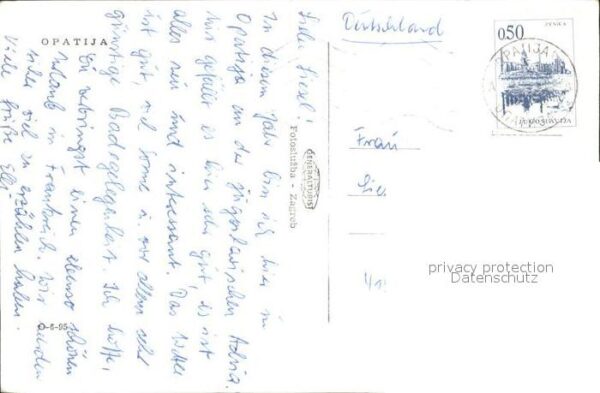 OPATIJA
Liebe Liesel!
In diesem Jahr bin ich hier in
Opatija an der jugoslawischen Adria.
Mir gefällt es hier sehr gut, es ist
alles neu und interessant. Das Wetter
ist gut, viel Sonne u. vor allem sehr
günstige Badegelegenheit. Ich hoffe,
Du verbringst einen ebenso schönen
Urlaub in Frankreich. Wir werden
sicher viel zu erzählen haben.
Viele Grüße Elli
O-6-95
Fotoslužba - Zagreb
GENERALTURIST
Deutschland
Frau
Lie
0,50
ZENICA
OPATIJA
JUGOSLAVIJA
privacy protection
Datenschutz